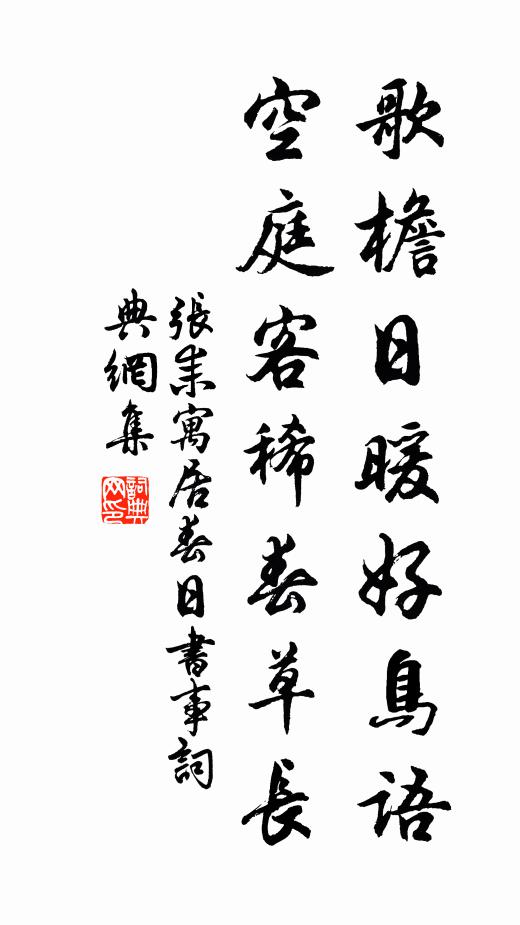 歌檐日暖好鳥語
空庭客稀春草長
張耒寓居春日書事詞
典網集
詞典網印